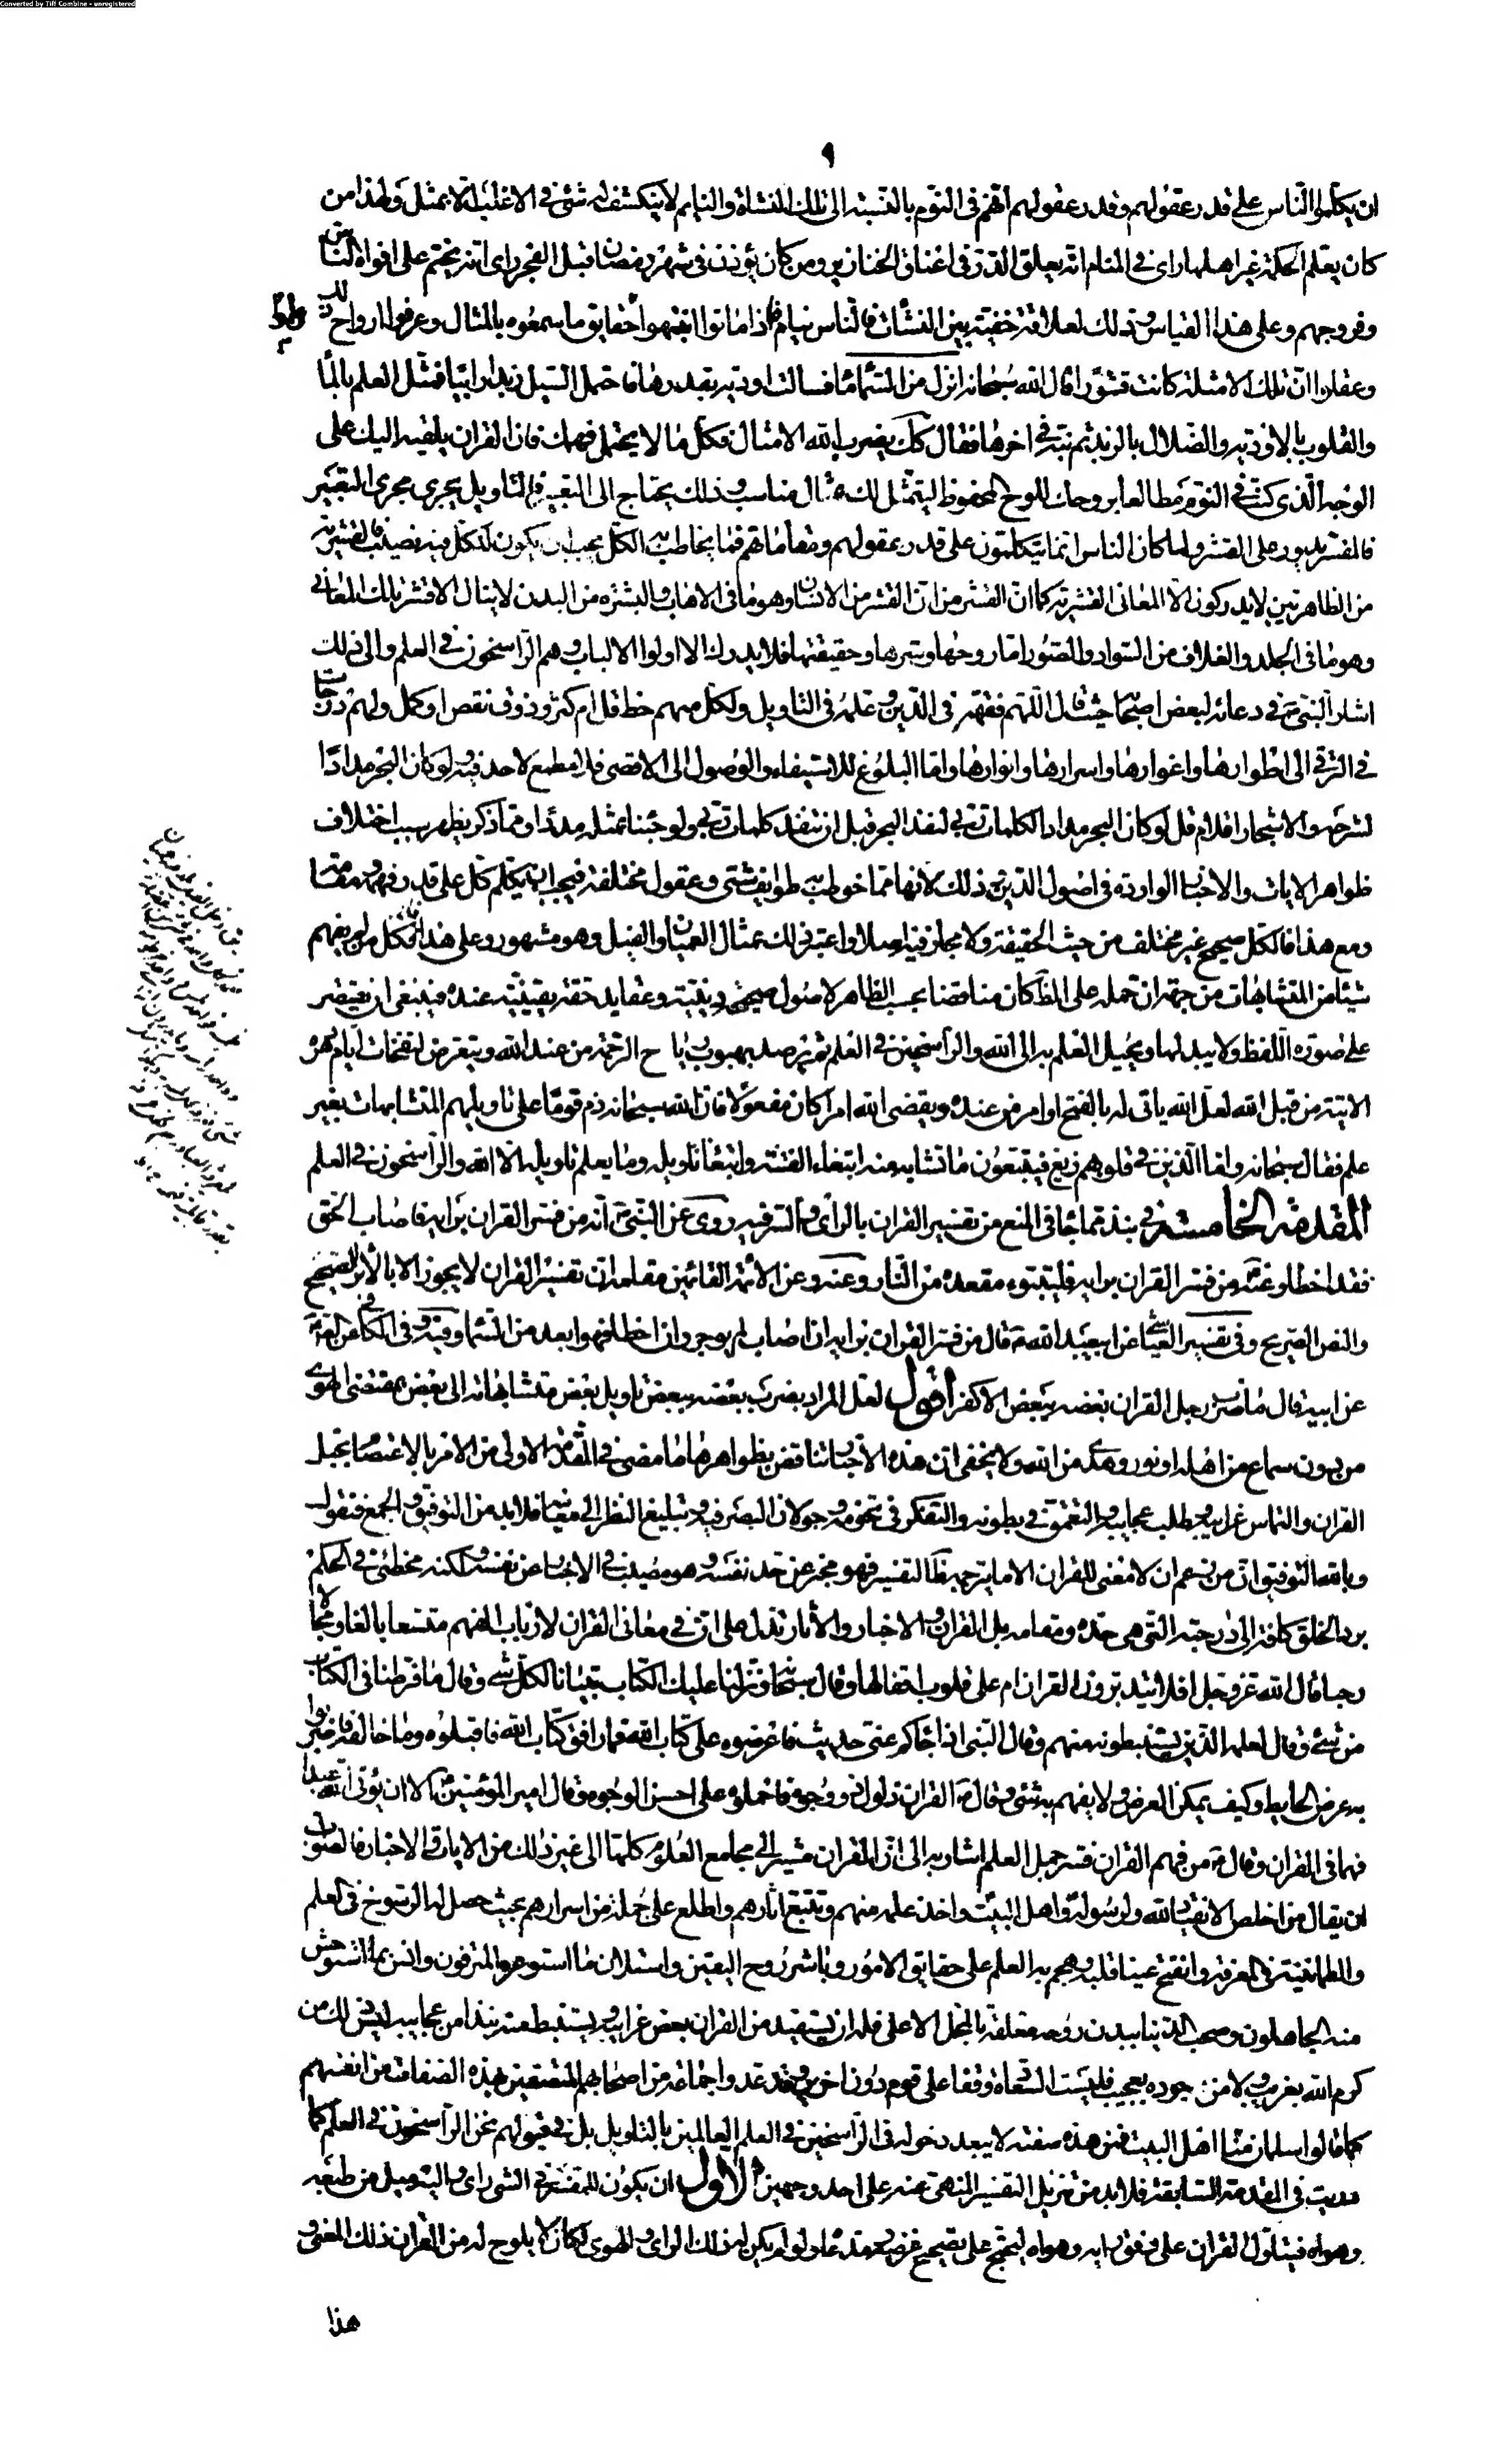 Converted by Tiff Combine - unregistered
٩
ان يكلموا الناس على قدر عقولهم وقدر عقولهم انهم فى النوم بالنسبة الى تلك النشاة والنايم لا ينكشف له شئ فى الاغلب الا بمثل ولهذا من
كان يعلم الحكمة غير اهلها راى فى المنام انه يعلق الدر فى اعناق الخنازير ومن كان يؤذن فى شهر رمضان قبل الفجر راى انه يختم على افواه الناس
وفروجهم وعلى هذا القياس وذلك لعلاقة خفية بين النشئات فالناس نيام فاذا ماتوا انتبهوا حقايق ما سمعوه بالمثال وعرفوا ارواح ذلك
وعقلوا ان تلك الامثلة كانت قشورا قال الله سبحانه انزل من السماء ماء فسالت اودية بقدرها فاحتمل السيل زبدا رابيا فمثل العلم بالماء
والقلوب بالاودية والضلال بالزبد ثم نبه فى اخرها فقال كذلك يضرب الله الامثال فكل ما لا يحتمل فهمك فان القران يلقيه اليك على
الوجه الذى كنت فى النوم مطالعا بروحك للوح المحفوظ ليتمثل لك بمثال مناسب وذلك يحتاج الى التعبير فالتاويل يجرى مجرى التعبير
فالمفسر يدور على القشر ولما كان الناس انما يتكلمون على قدر عقولهم ومقاماتهم فما يخاطب به الكل يجب ان يكون للكل فيه نصيب فالقشرية
من الظاهريين لا يدركون الا المعانى القشرية كما ان القشر من الانسان وهو ما فى الاهاب والبشرة من البدن لا ينال الا قشر تلك المعانى
وهو ما فى الجلد والغلاف من السواد والصور اما روحها وسرها وحقيقتها فلا يدرك الا اولوا الالباب وهم الراسخون فى العلم والى ذلك
اشار النبى ص فى دعائه لبعض اصحابه حيث قال اللهم فقهه فى الدين وعلمه فى التاويل ولكل منهم حظ قل ام كثر وذوق نقص او كمل ولهم درجات
فى الترقى الى اطوارها واغوارها واسرارها وانوارها واما البلوغ للاستيفاء والوصول الى الاقصى فلا مطمع لاحد فيه ولو كان البحر مدادا
لشرحه والاشجار اقلام قل لو كان البحر مدادا لكلمات ربى لنفد البحر قبل ان تنفد كلمات ربى ولو جئنا بمثله مددا ومما ذكر يظهر سبب اختلاف
ظواهر الايات والاخبار الواردة فى اصول الدين وذلك لانها مما خوطب به طوايف شتى وعقول مختلفة فيجب ان يكلم كل على قدر فهمه ومقامه
ومع هذا فالكل صحيح غير مختلف من حيث الحقيقة ولا مجاز فيه اصلا واعتبر ذلك بمثال العميان والفيل وهو مشهور وعلى هذا فكل من لم يفهم
شيئا من المتشابهات من جهة ان حمله على الظاهر كان مناقضا بحسب الظاهر لاصول صحيحة دينية وعقايد حقة يقينية عنده فينبغى ان يقتصر
على صورة اللفظ ولا يبدلها ويحيل العلم به الى الله والراسخين فى العلم ثم يترصد لهبوب رياح الرحمة من عند الله ويتعرض لنفحات ايام دهره
الاتية من قبل الله لعل الله ياتى له بالفتح او امر من عنده ويقضى الله امرا كان مفعولا فان الله سبحانه ذم قوما على تاويلهم المتشابهات بغير
علم فقال سبحانه واما الذين فى قلوبهم زيغ فيتبعون ما تشابه منه ابتغاء الفتنة وابتغاء تاويله وما يعلم تاويله الا الله والراسخون فى العلم
المقدمة الخامسة فى نبذ مما جاء فى المنع من تفسير القران بالراى والسر فيه روى عن النبى ص انه من فسر القران برايه فاصاب الحق
فقد اخطا وعنه ص من فسر القران برايه فليتبوء مقعده من النار وعنه وعن الائمة القائمين مقامه ان تفسير القران لا يجوز الا بالاثر الصحيح
والنص الصريح وفى تفسير العياشى عن ابى عبد الله ع قال من فسر القران برايه ان اصاب لم يوجر وان اخطا فهو ابعد من السماء وفيه وفى الكافى عن الصادق
عن ابيه قال ما ضرب رجل القران بعضه ببعض الا كفر اقول لعل المراد بضرب بعضه ببعض تاويل بعض متشابهاته الى بعض بمقتضى الهوى
من دون سماع من اهله او نور وهدى من الله ولا يخفى ان هذه الاخبار تناقض بظواهرها ما مضى فى المقدمة الاولى من الامر بالاعتصام بحبل
القران والتماس غرايبه وطلب عجايبه والتعمق فى بطونه والتفكر فى تخومه وجولان البصر فيه وتبليغ النظر الى معانيه فلا بد من التوفيق والجمع فنقول
وبالله التوفيق ان من زعم ان لا معنى للقران الا ما يترجمه ظاهر التفسير فهو مخبر عن حد نفسه وهو مصيب فى الاخبار عن نفسه ولكنه مخطئ فى الحكم
برد الخلق كافة الى درجته التى هى حده ومقامه بل القران والاخبار والاثار تدل على ان فى معانى القران لارباب الفهم متسعا بالغا ومجالا
رحبا قال الله عز وجل افلا يتدبرون القران ام على قلوب اقفالها وقال سبحانه ونزلنا عليك الكتاب تبيانا لكل شئ وقال ما فرطنا فى الكتاب
من شئ وقال لعلمه الذين يستنبطونه منهم وقال النبى اذا جاءكم عنى حديث فاعرضوه على كتاب الله فما وافق كتاب الله فاقبلوه وما خالفه فاضربوا
به عرض الحايط وكيف يمكن العرض ولا يفهم به شئ وقال ص القران ذلول ذو وجوه فاحملوه على احسن الوجوه وقال امير المؤمنين ع الا ان يؤتى الله عبدا
فهما فى القران وقال ع من فهم القران فسر جمل العلم اشار به الى ان القران مشير الى مجامع العلوم كلها الى غير ذلك من الايات والاخبار فالصواب
ان يقال من اخلص الانقياد لله ولرسوله ص واهل البيت واخذ علمه منهم وتتبع اثارهم واطلع على جملة من اسرارهم بحيث حصل له الرسوخ فى العلم
والطمانينة فى المعرفة وانفتح عينا قلبه وهجم به العلم على حقايق الامور وباشر روح اليقين واستلان ما استوعره المترفون وانس بما استوحش
منه الجاهلون وصحب الدنيا ببدن روحه معلقة بالمحل الاعلى فله ان يستفيد من القران بعض غرايبه ويستنبط منه نبذا من عجايبه ليس ذلك من
كرم الله بغريب ولا من جوده بعجيب فليست السعادة وقفا على قوم دون اخرين وقد عدوا جماعة من اصحابهم المتصفين بهذه الصفات من انفسهم
كما قالوا سلمان منا اهل البيت فمن هذه صفته لا يبعد دخوله فى الراسخين فى العلم العالمين بالتاويل بل فى قولهم نحن الراسخون فى العلم كما
دريت فى المقدمة السابقة فلا بد من تنزيل التفسير المنهى عنه على احد وجهين الاول ان يكون للمفسر فى الشئ راى واليه ميل من طبعه
وهواه فيتاول القران على وفق رايه وهواه ليحتج على تصحيح غرضه ومدعاه ولو لم يكن له ذلك الراى والهوى لكان لا يلوح له من القران ذلك المعنى و
هذا